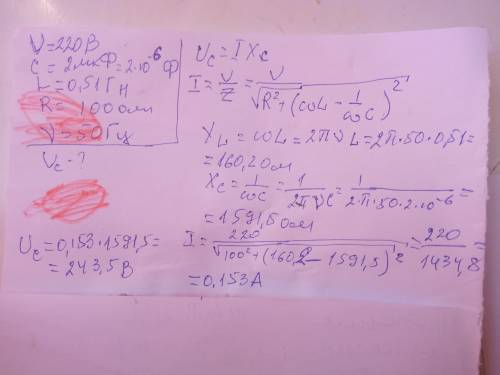 U=220В
C=2мкФ=2·10⁻⁶Ф
L=0,51Гн
R=100ом
ν=50Гц
Uc-?
Uc=0,153·1591,5=
=243,5В
Uc=IXc
I=U/Z=U/√(R²+(ωL-1/ωC)²)
XL=ωL=2πνL=2π·50·0,51=
=160,2Ом
Xc=1/ωC=1/2πνC=1/2·π·50·2·10⁻⁶=
=1591,5Ом
I=220/√(100²+(160,2-1591,5)²)=220/1434,8=
=0,153A